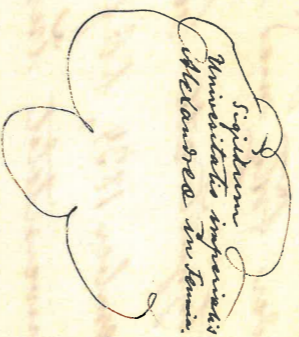 Sigillum
Universitatis imperialis
Alexandreae in Fennia.